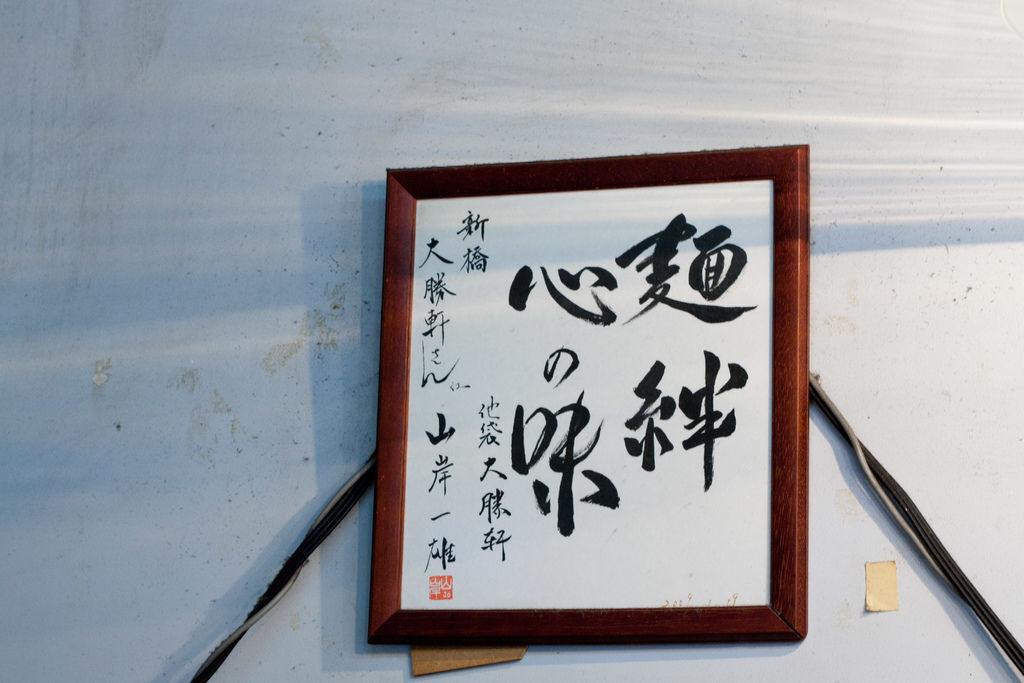 麺絆
心の味
新橋
大勝軒さん江
池袋大勝軒
山岸一雄
山岸